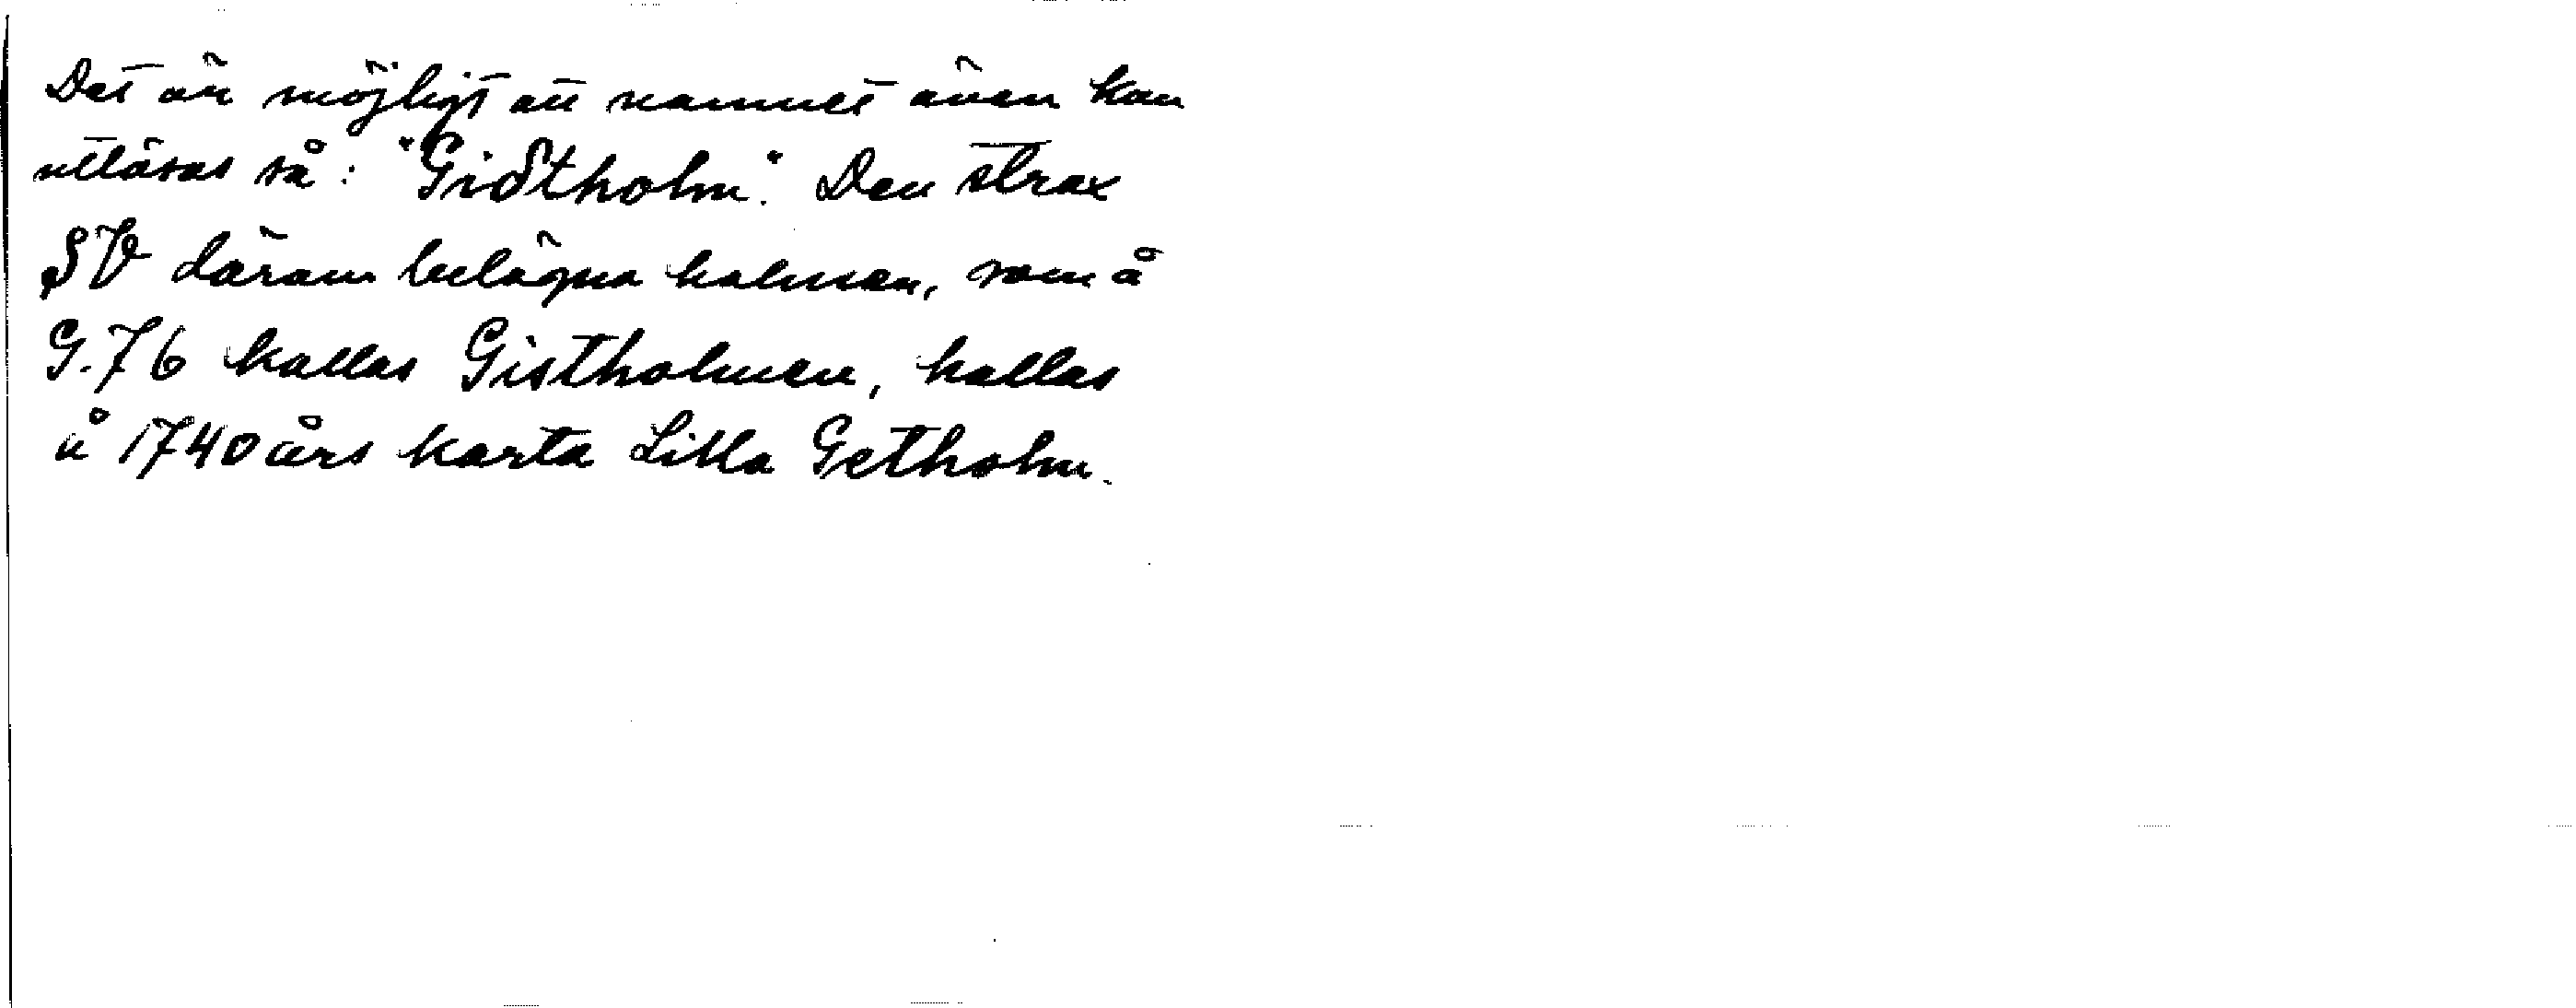 Det är möjligt att namnet även kan
utläsas så: "Gidtholm". Den strax
SV därom belägna holmen, som å
G. 76 kallas Gistholmen, kallas
å 1740 års karta Lilla Getholm.